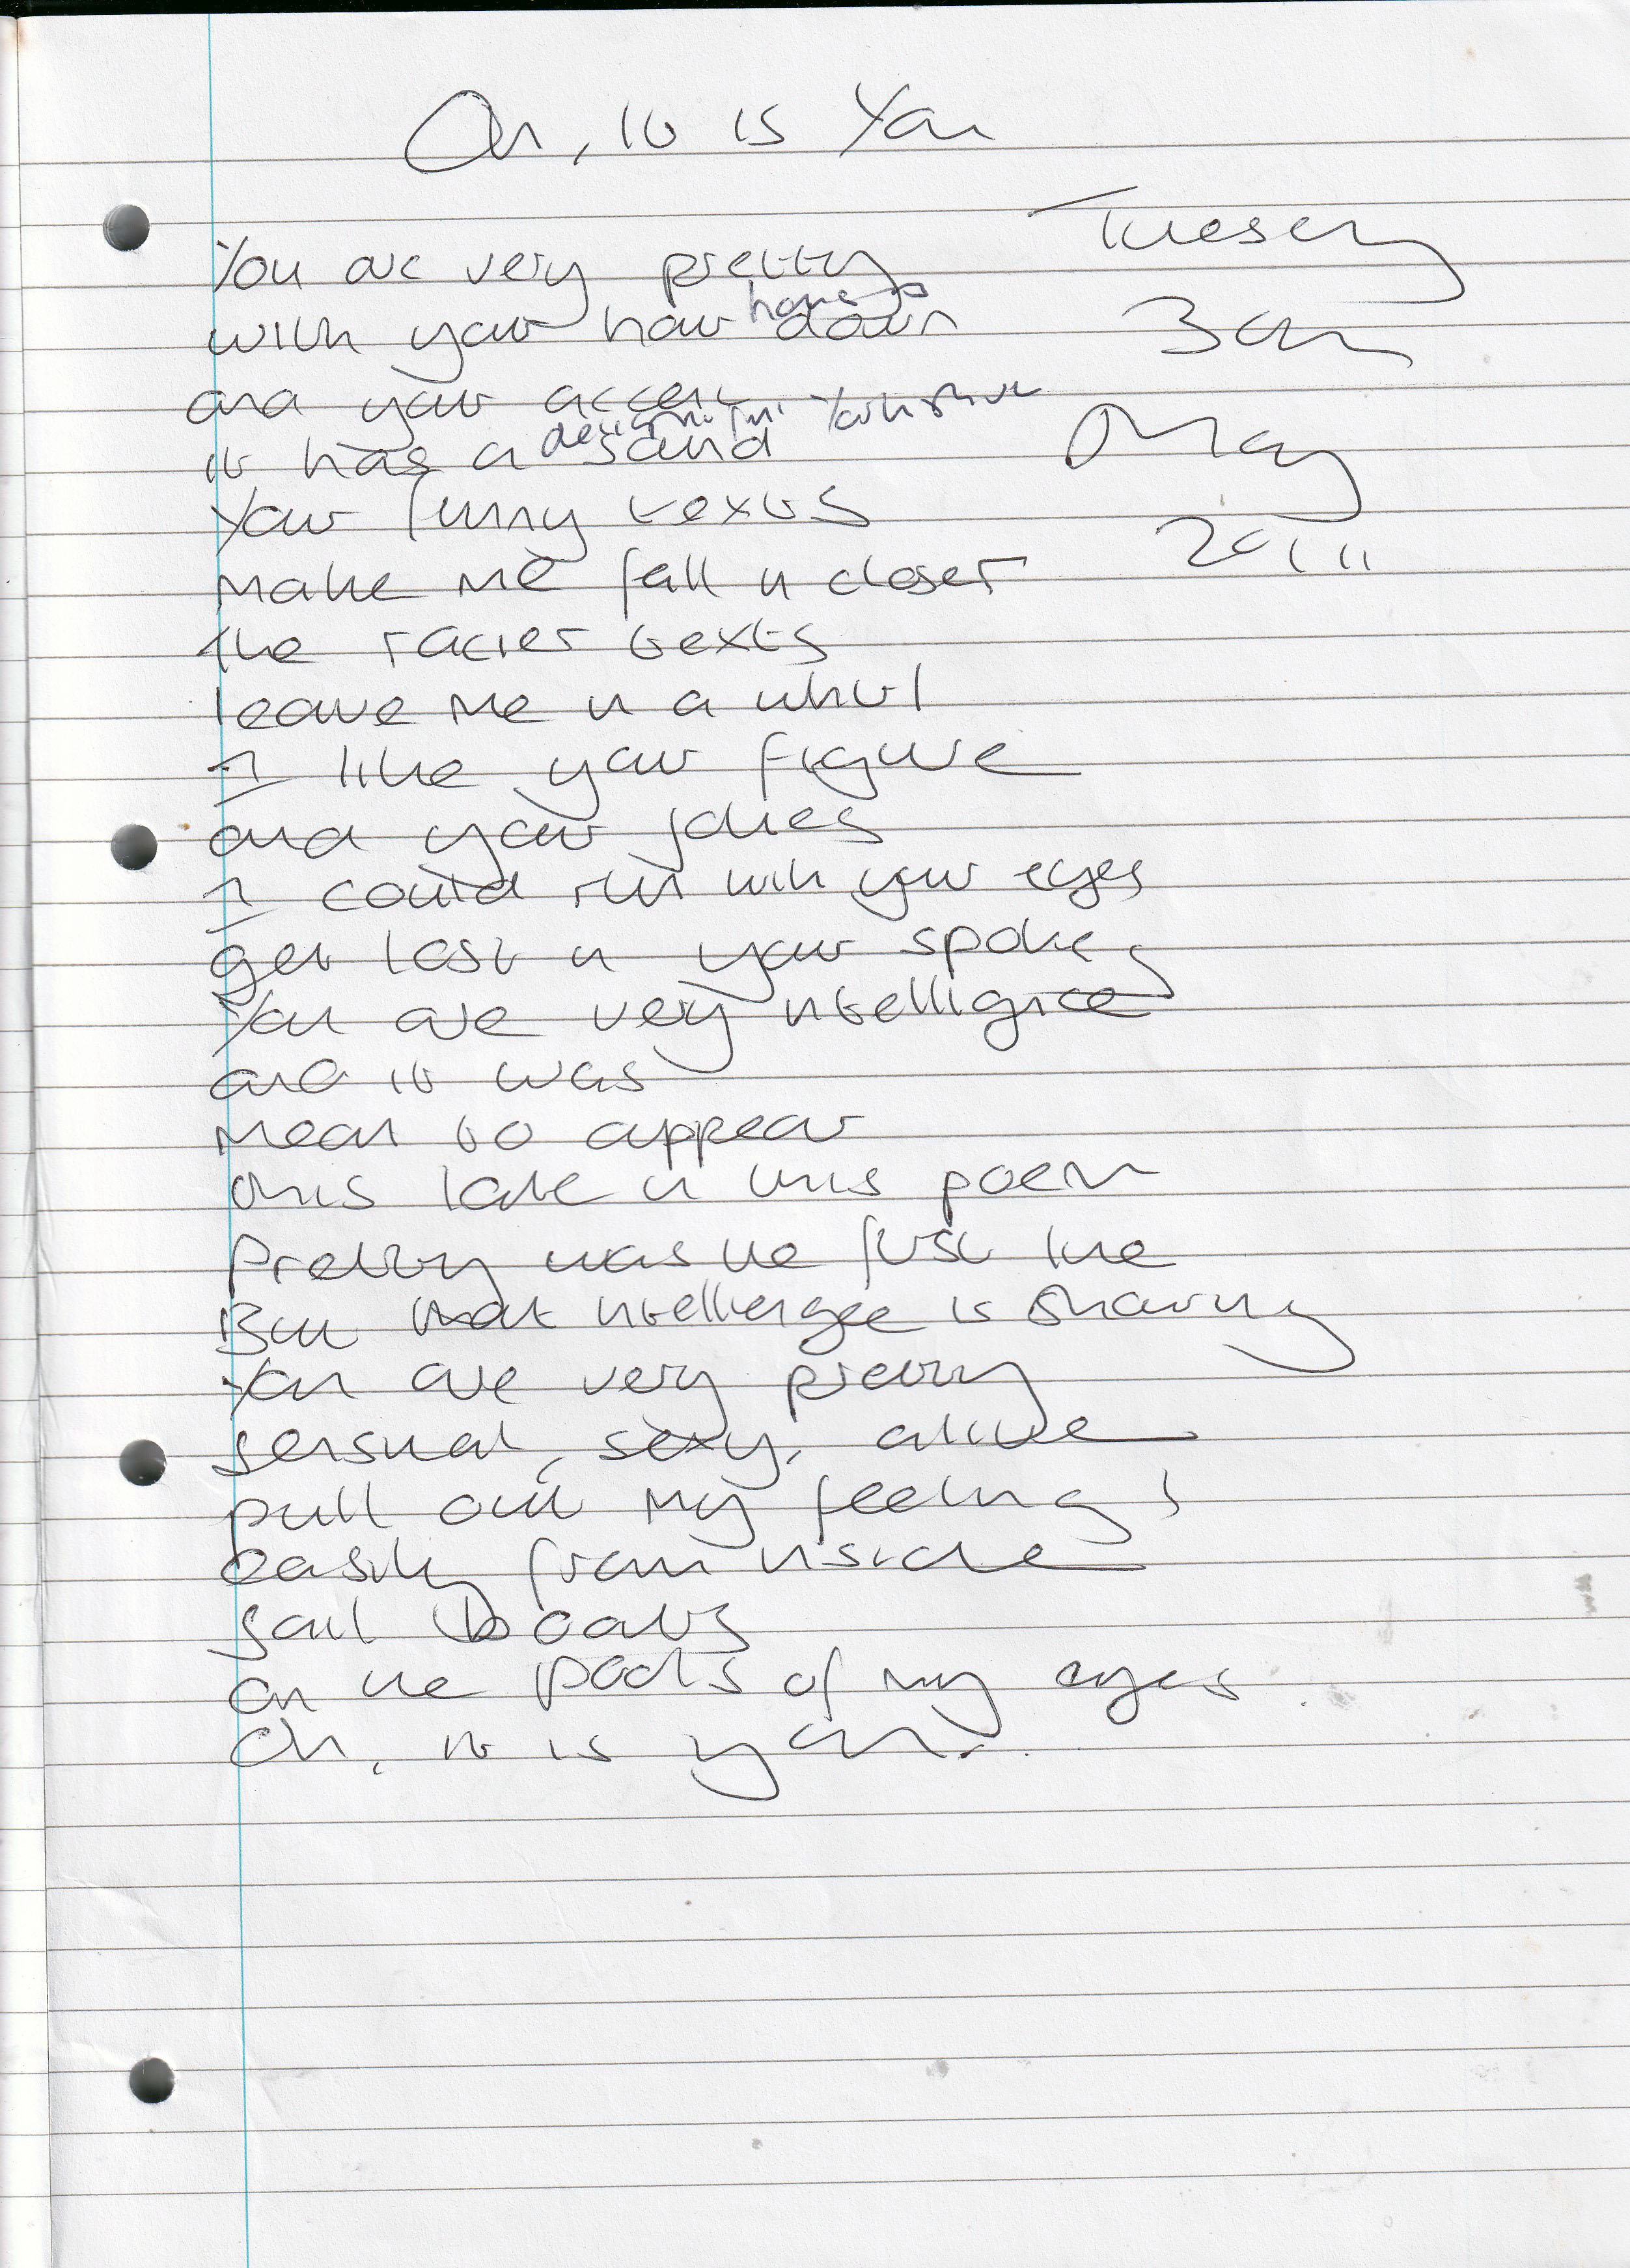 Oh, it is You
Tuesday
3rd
May
2011
You are very pretty
with your hair down
and your accent
it has a Yorkshire sound
Your funny texts
make me fall in closer
the racier texts
leave me in a whirl
I like your figure
and your jokes
I could run with your eyes
get lost in your spokes
You are very intelligence
and it was
mean to appear
this late in this poem
Pretty was the first line
But that intelligence is sharing
You are very pretty
sensual, sexy, alive
pull out my feelings
easily from inside
sail boats
on the pools of my eyes
Oh, it is you.